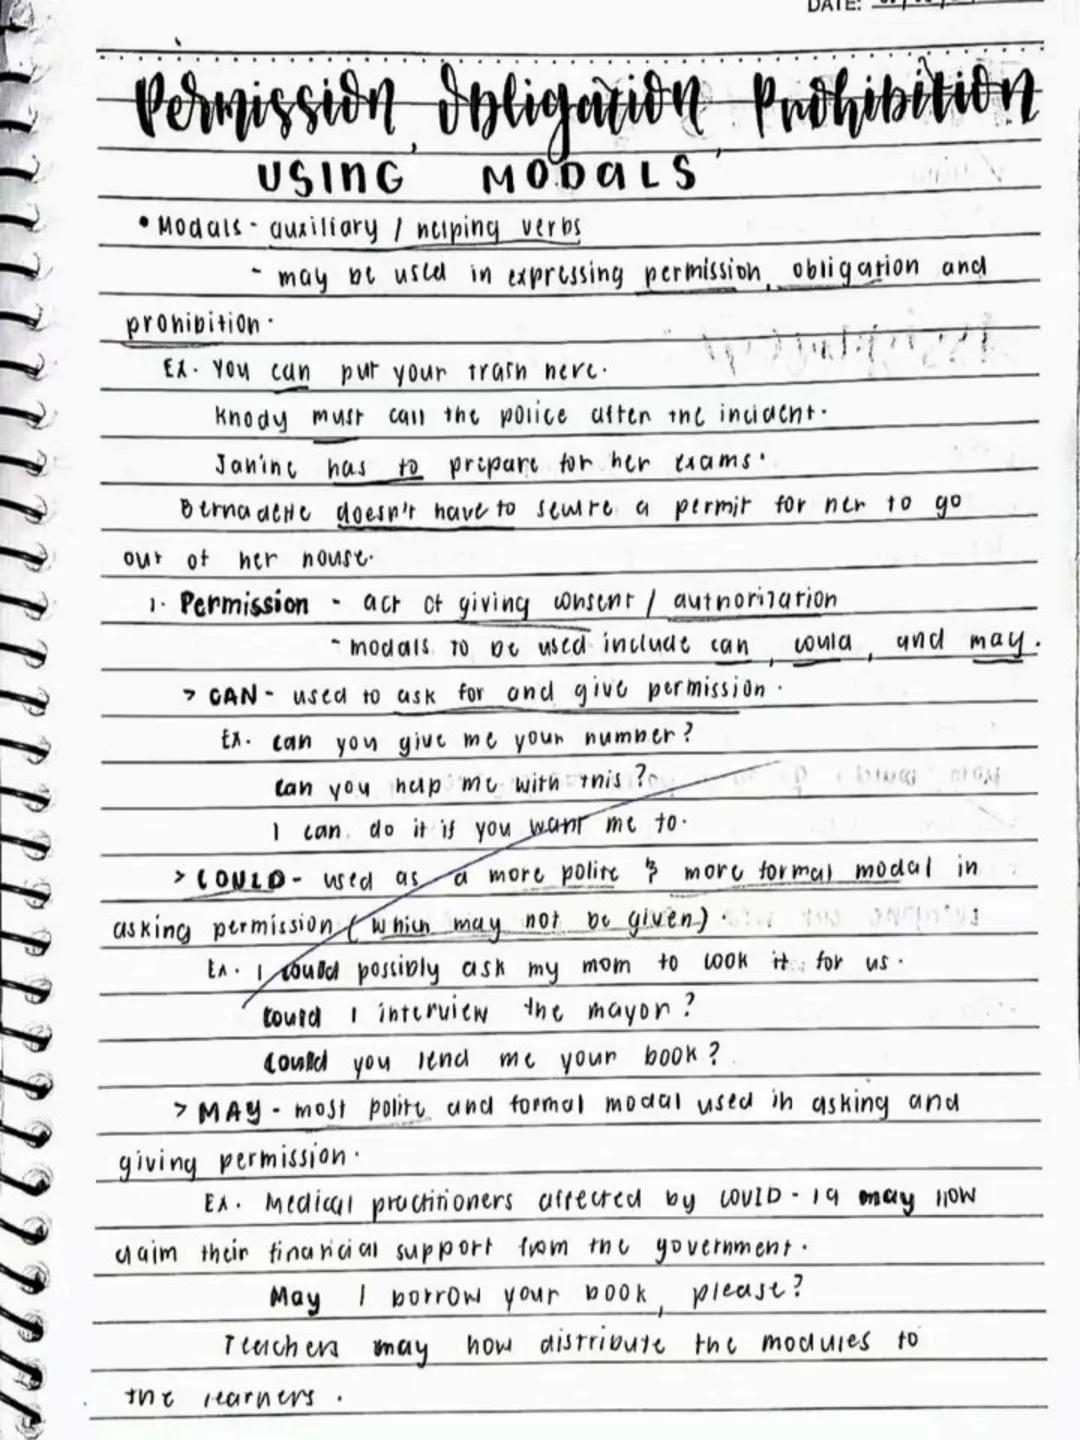 DATE:
Permission, Obligation, Prohibition
USING MODALS
• Modals - auxiliary / helping verbs
- may be used in expressing permission, obligation and
prohibition.
Ex. You can put your trash here.
Knody must call the police after the incident.
Janine has to prepare for her exams.
Bernadette doesn't have to secure a permit for her to go
out of her house.
1. Permission - act of giving consent / authorization
- modals to be used include can, could, and may.
> CAN - used to ask for and give permission.
Ex. can you give me your number?
Can you help me with this?
I can do it if you want me to.
> COULD - used as a more polite & more formal modal in
asking permission (which may not be given).
Ex. I could possibly ask my mom to cook it for us.
Could I interview the mayor?
Could you lend me your book?
> MAY - most polite and formal modal used in asking and
giving permission.
Ex. Medical practitioners affected by COVID-19 may now
claim their financial support from the government.
May I borrow your book, please?
Teachers may now distribute the modules to
the learners.